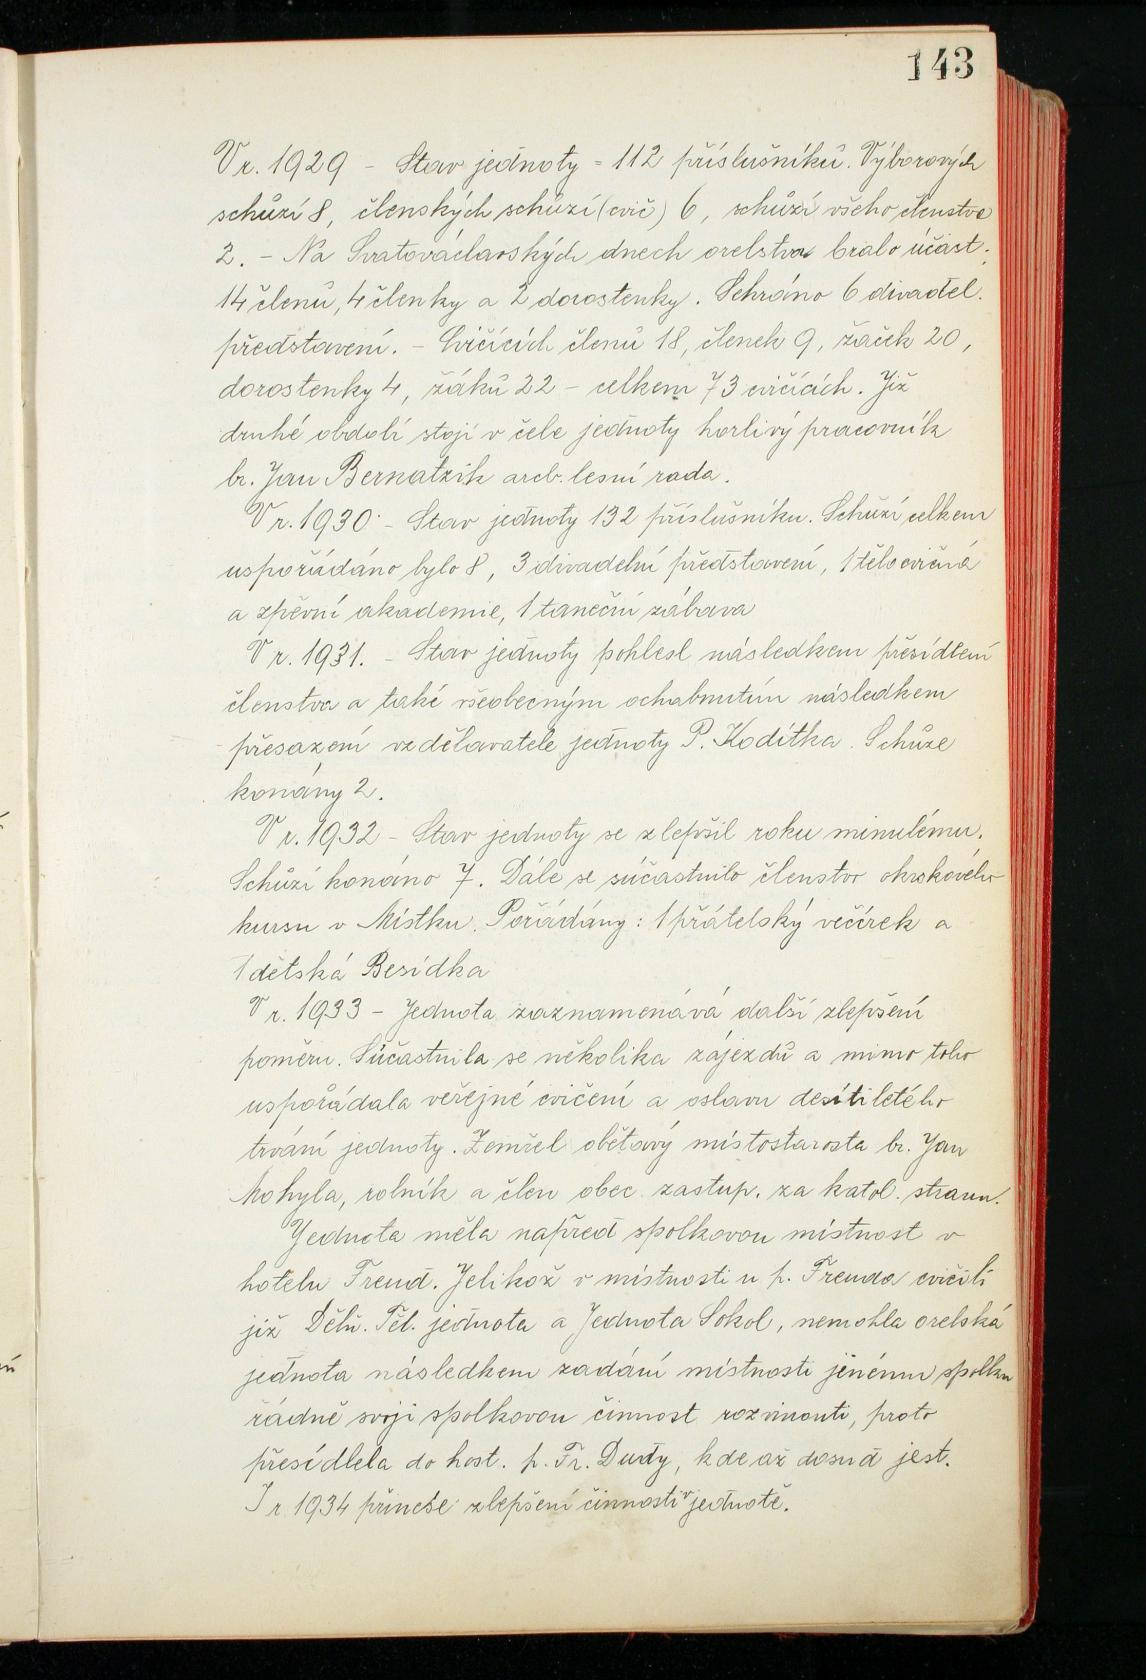 143
V r. 1929 - Stav jednoty = 112 příslušníků. Výborových
schůzí 8, členských schůzí (cvič) 6, schůzí všeho členstva
2. - Na Svatováclavských dnech orelstva bralo účast:
14 členů, 4 členky a 2 dorostenky. Sehráno 6 divadel.
představení. - Cvičících členů 18, členek 9, žaček 20,
dorostenky 4, žáků 22 - celkem 73 cvičících. Již
druhé období stojí v čele jednoty horlivý pracovník
br. Jan Bernatzik arcb. lesní rada.
V r. 1930 - Stav jednoty 132 příslušníku. Schůzí celkem
uspořádáno bylo 8, 3 divadelní představení, 1 tělocvičná
a zpěvní akademie, 1 taneční zábava
V r. 1931. - Stav jednoty pohlesl následkem přesídlení
členstva a také všeobecným ochabnutím následkem
přesazení vzdělavatele jednoty P. Kodítka. Schůze
konány 2.
V r. 1932 - Stav jednoty se zlepšil roku minulému.
Schůzí konáno 7. Dále se súčastnilo členstvo okrskového
kursu v Místku. Pořádány: 1 přátelský večírek a
1 dětská Besídka
V r. 1933 - Jednota zaznamenává další zlepšení
poměru. Súčastnila se několika zájezdů a mimo toho
uspořádala veřejné cvičení a oslavu desítiletého
trvání jednoty. Zemřel obětavý místostarosta br. Jan
Mohyla, rolník a člen obec. zastup. za katol. stranu.
Jednota měla napřed spolkovou místnost v
hotelu Freud. Jelikož v místnosti u p. Freuda cvičili
již Děln. Těl. jednota a Jednota Sokol, nemohla orelská
jednota následkem zadání místnosti jinému spolku
řádně svoji spolkovou činnost rozvinouti, proto
přesídlela do host. p. Fr. Dudy, kde až dosud jest.
I r 1934 přinese zlepšení činnosti v jednotě.